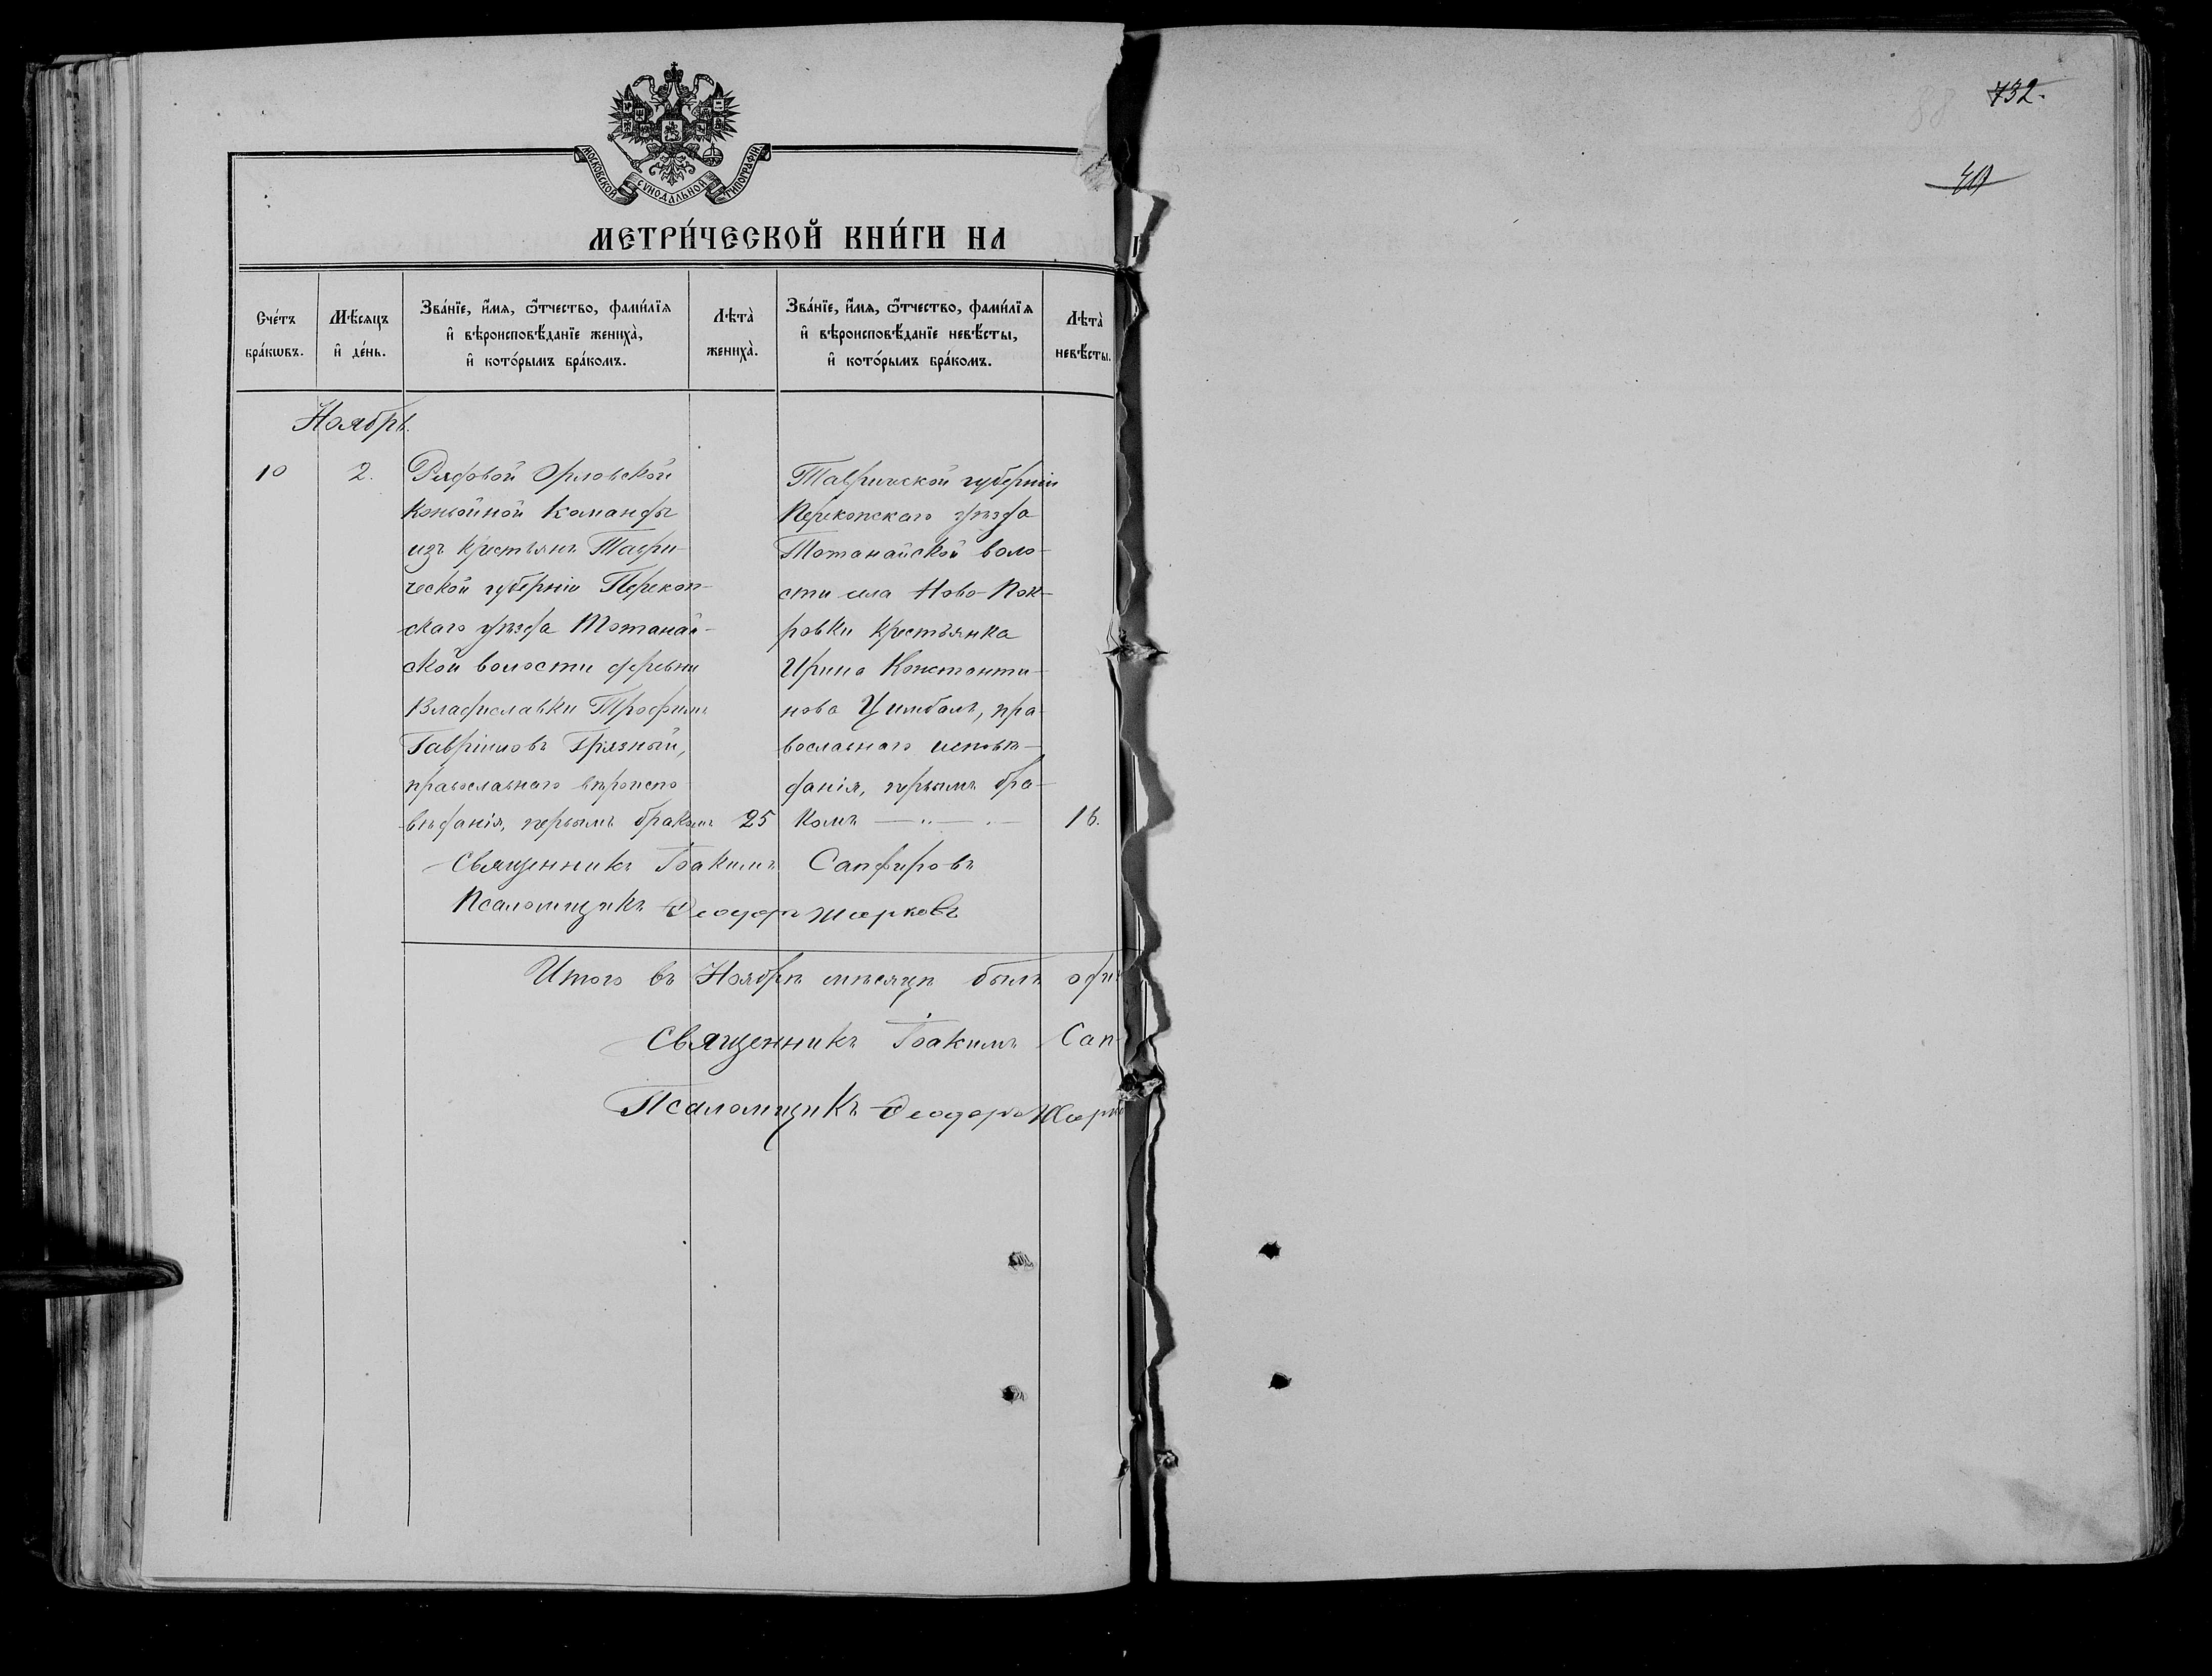 МОСКОВСКОЙ СѴНОДАЛЬНОЙ ТИПОГРАФІИ.
МЕТРИ́ЧЕСКОЙ КНИ́ГИ НА
Сче́тъ бра́кωвъ.
Мѣ́сяцъ и҆ де́нь.
Зва́нїе, и҆́мѧ, ѻ҆́тчество, фами́лїѧ
и҆ вѣроисповѣ́данїе жениха̀,
и҆ кото́рымъ бра́комъ.
Лѣта̀ жениха̀.
Зва́нїе, и҆́мѧ, ѻ҆́тчество, фами́лїѧ
и҆ вѣроисповѣ́данїе невѣ́сты,
и҆ кото́рымъ бра́комъ.
Лѣта̀ невѣ́сты.
Ноябрь.
10
2.
Рядовой Орловской
Конвойной Команды
изъ крестьянъ Таври-
ческой губерніи Перекоп-
скаго уѣзда Тотанай-
ской волости деревни
Владиславки Трофимъ
Гавріиловъ Грязный,
православнаго вѣроиспо-
вѣданія, первымъ бракомъ
25
Таврической губерніи
Перекопскаго уѣзда
Тотанайской воло-
сти села Ново-Пок-
ровки крестьянка
Ирина Константи-
нова Цимбалъ, пра-
вославнаго исповѣ-
данія, первымъ бра-
комъ
16.
Священникъ Іоакимъ Сапфировъ
Псаломщикъ Ѳеодоръ Жарковъ
Итого въ Ноябрѣ мѣсяцѣ былъ оди
Священникъ Іоакимъ Сап
Псаломщикъ Ѳеодоръ Жарко
88
732.